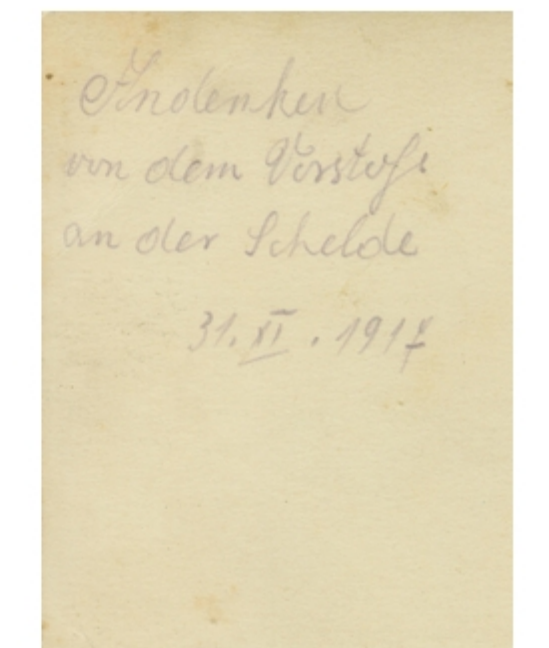 Andenken
von dem Vorstoß
an der Schelde
31. XI. 1917